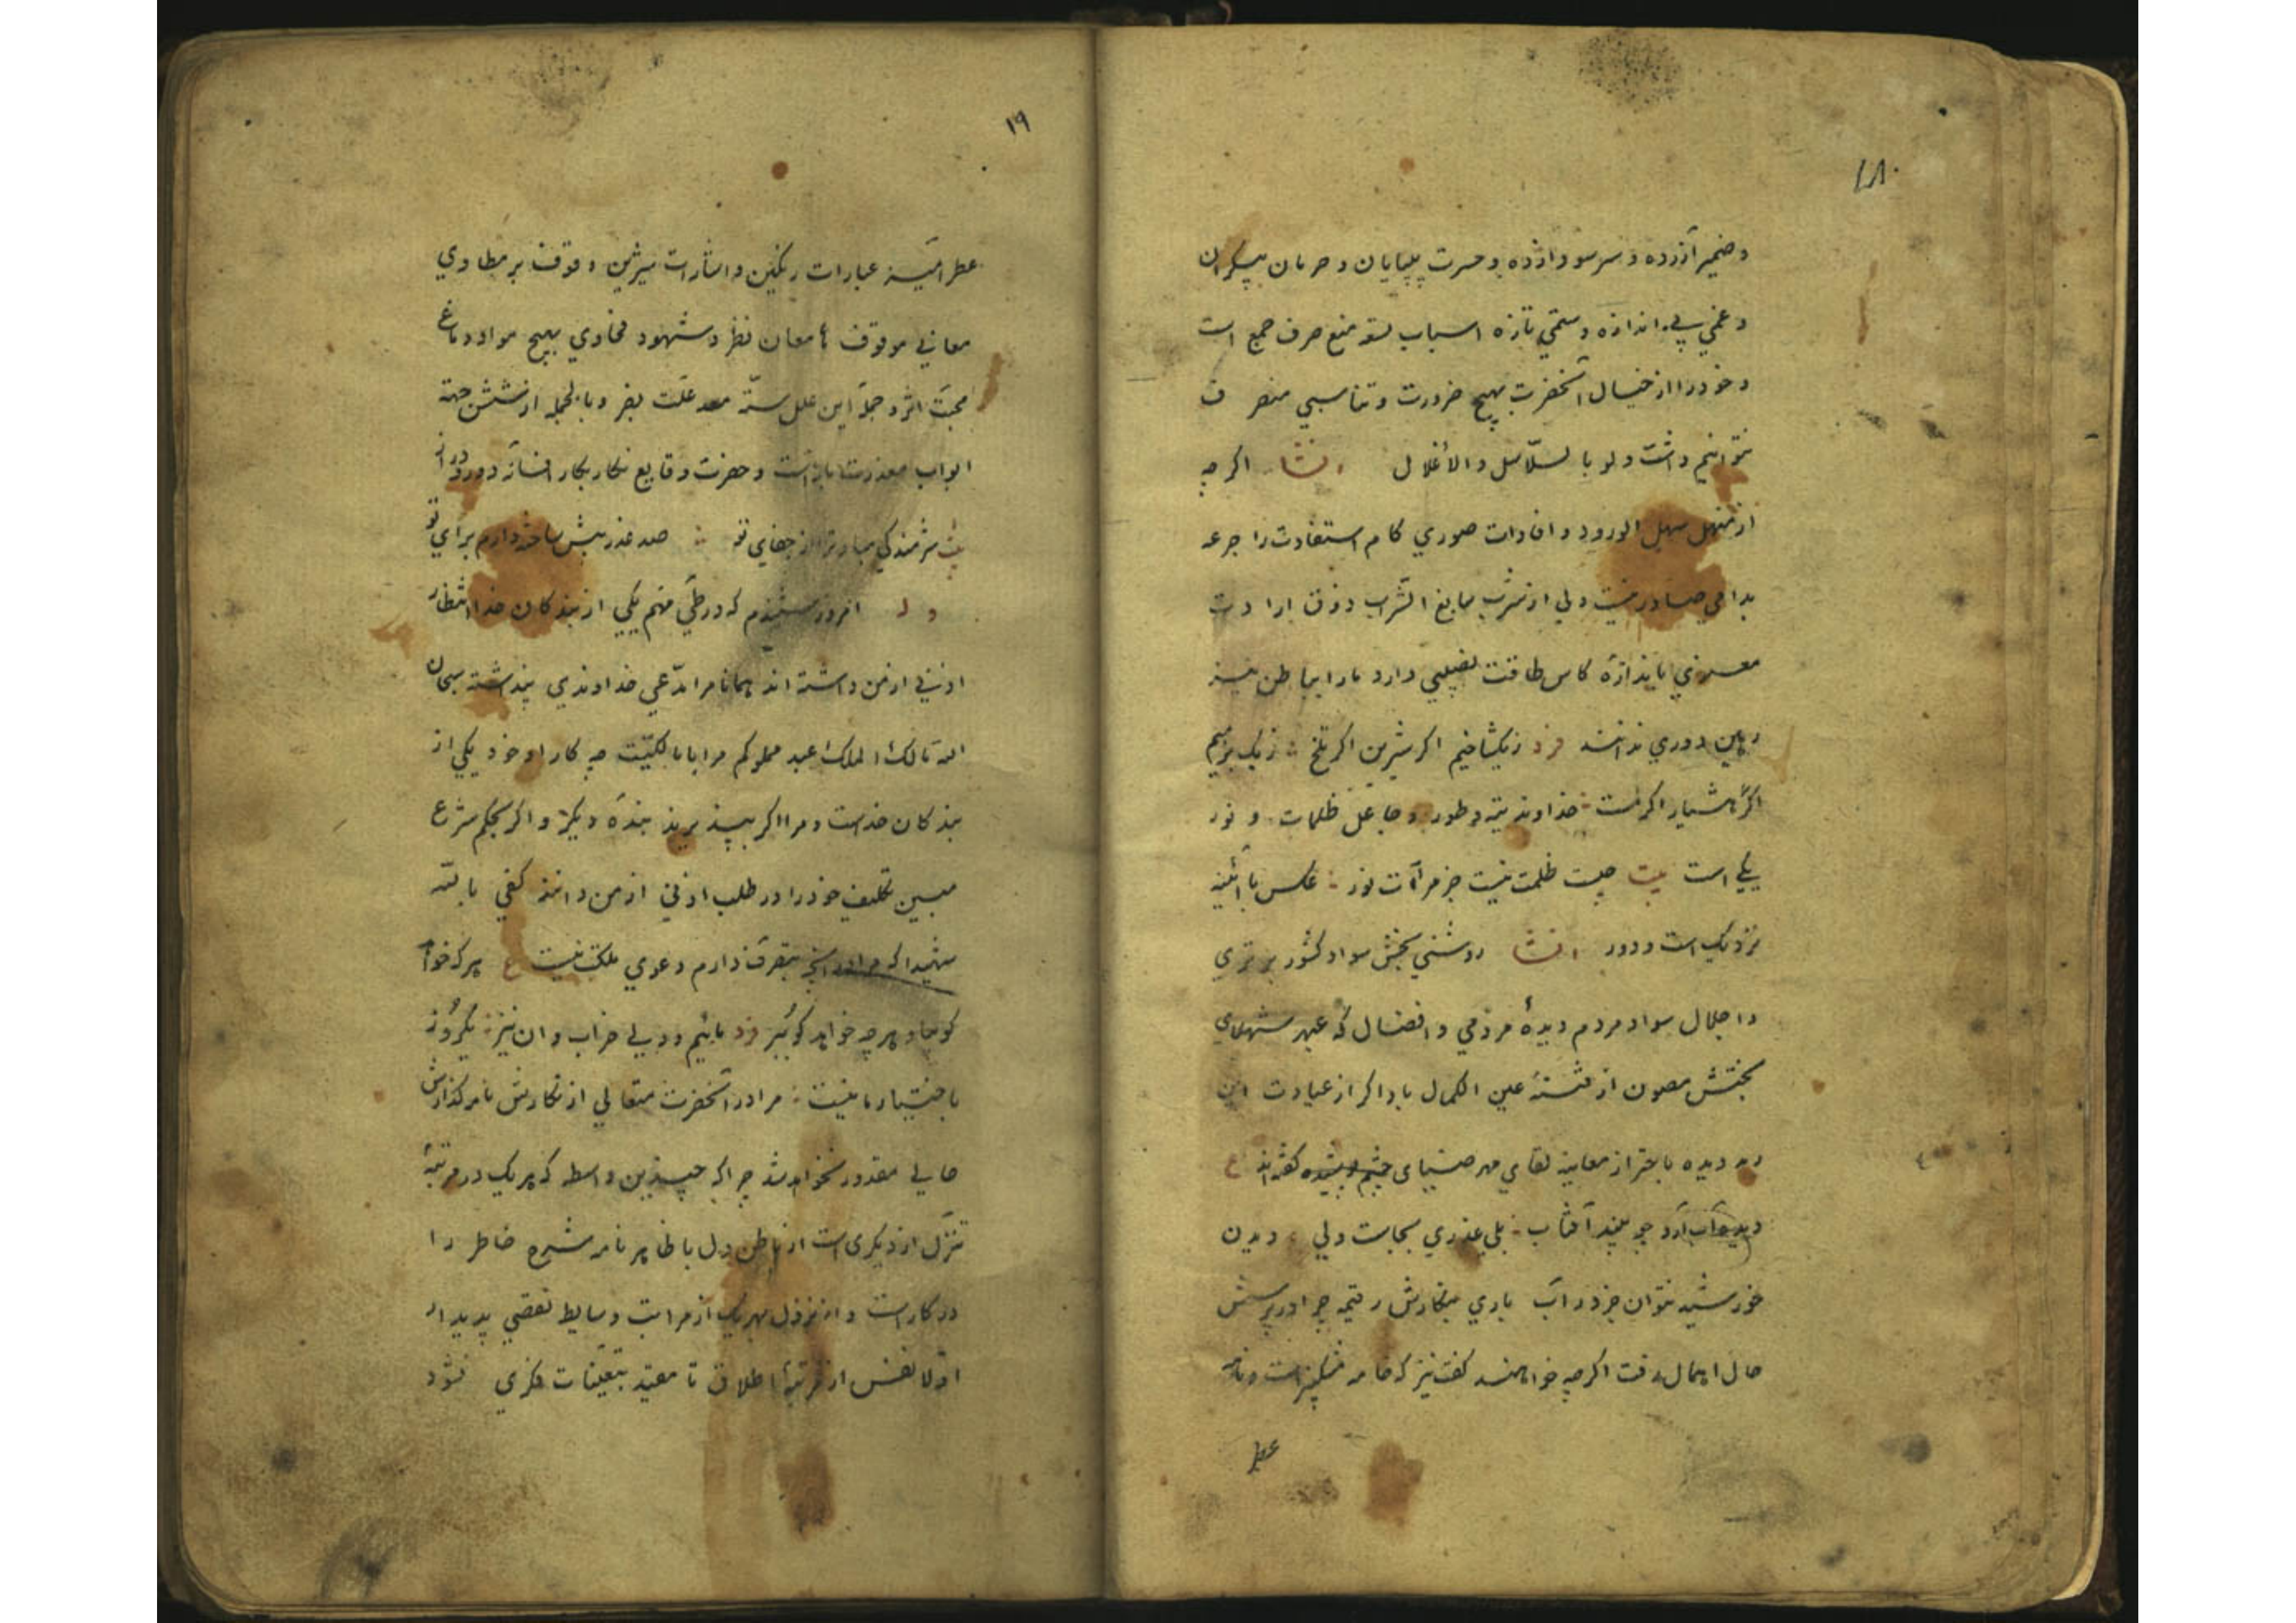 ۱۸
وضمیر آزرده و سر سودازده و حسرت بیپایان و حرمان بیکران
و غمی بی اندازه و ستمی تازه اسباب منع صرف جمع است
و خود را از خیال آنحضرت بهیچ ضرورت و تناسبی منصرف
نتوانیم داشت ولو بالسّلاسل والأغلال انشا اکرچه
از منهل سهل الورود و افادات صوری کام استفادت را جرعه
دلی از شرب سایغ الشراب ذوق ارادت
معنوی باندازهٔ کاس طاقت نصیبی دارد ما را بباطن نیز
دوری ندانند فرد زیکشاخیم اکر شیرین اکر تلخ زیک بزمیم
اکر هشیار اکر مست خداوند تیه و طور و جاعل ظلمات و نور
یکی است بیت چیست ظلمت نیست جز مرآت نور عکس با آئینه
نزدیک است و دور انشا روشنی بخش سواد کشور برتری
و اجلال سواد مردم دیدهٔ مردمی و افضال که عبهر شهلای
بختش مصون از فتنهٔ عین الکمال باد اکر از عیادت این
رمد دیده باحتراز معاینه لقای مهر ضیای چشم پوشیده کفته اند ع
دیده آب آرد چو بیند آفتاب بلی عذری بجاست ولی دیدن
خورشید نتوان جز در آب باری بنکارش رقیمه چرا در پرسش
حال اهمال رفت اکرچه خواهند کفت نیز که خامه مشکبیز است و نامه
عطر
۱۹
عطرآمیز عبارات رنکین و اشارات شیرین وقوف بر مطاوی
معانی موقوف بامعان نظر و شهود فحاوی مهیج مواد دماغ
محبت اثر و جملهٔ این علل ستّه علت بصر و بالجمله از شش جهة
ابواب معذرت باز است و حضرت وقایع نکار بکار افسانه دور و دراز
بیت شرمندکی مباد ترا از جفای تو صد عذر بیش ساخته دارم برای تو
وله امروز شنیدم که در طیّ منهم یکی از بندکان خدا انتظار
اذنی از من داشته اند همانا مرا مدّعی خداوندی پنداشته سبحان
الله مالک الملک عبد مملوکم مرا با مالکیّت چه کار او خود یکی از
بندکان خداست و مرا اکر بپذیرند بندهٔ دیکر و اکر بحکم شرع
مبین تکلیف خود را در طلب اذنی از من دانند کفی بالله
شهیدا که مرا در آنچه بتصرف دارم دعوی ملکت نیست ع هر که خواهد
کو بیا و هرچه خواهد کو ببر فرد مائیم و دلی خراب و ان نیز یکروز
باختیار ما نیست مرا در آنحضرت متعالی از نکارش نامه کذارش
حالی مقدور نخواهد شد چرا که چندین واسطه که هر یک در مرتبهٔ
تنزّل از دیکری است از باطن دل تا ظاهر نامه شرح خاطر را
در کار است و از نزول بهر یک از مراتب وسایط نقصی پدیدار
اوّلا نفس از مرتبهٔ اطلاق تا مقید بتعیّنات فکری نشود